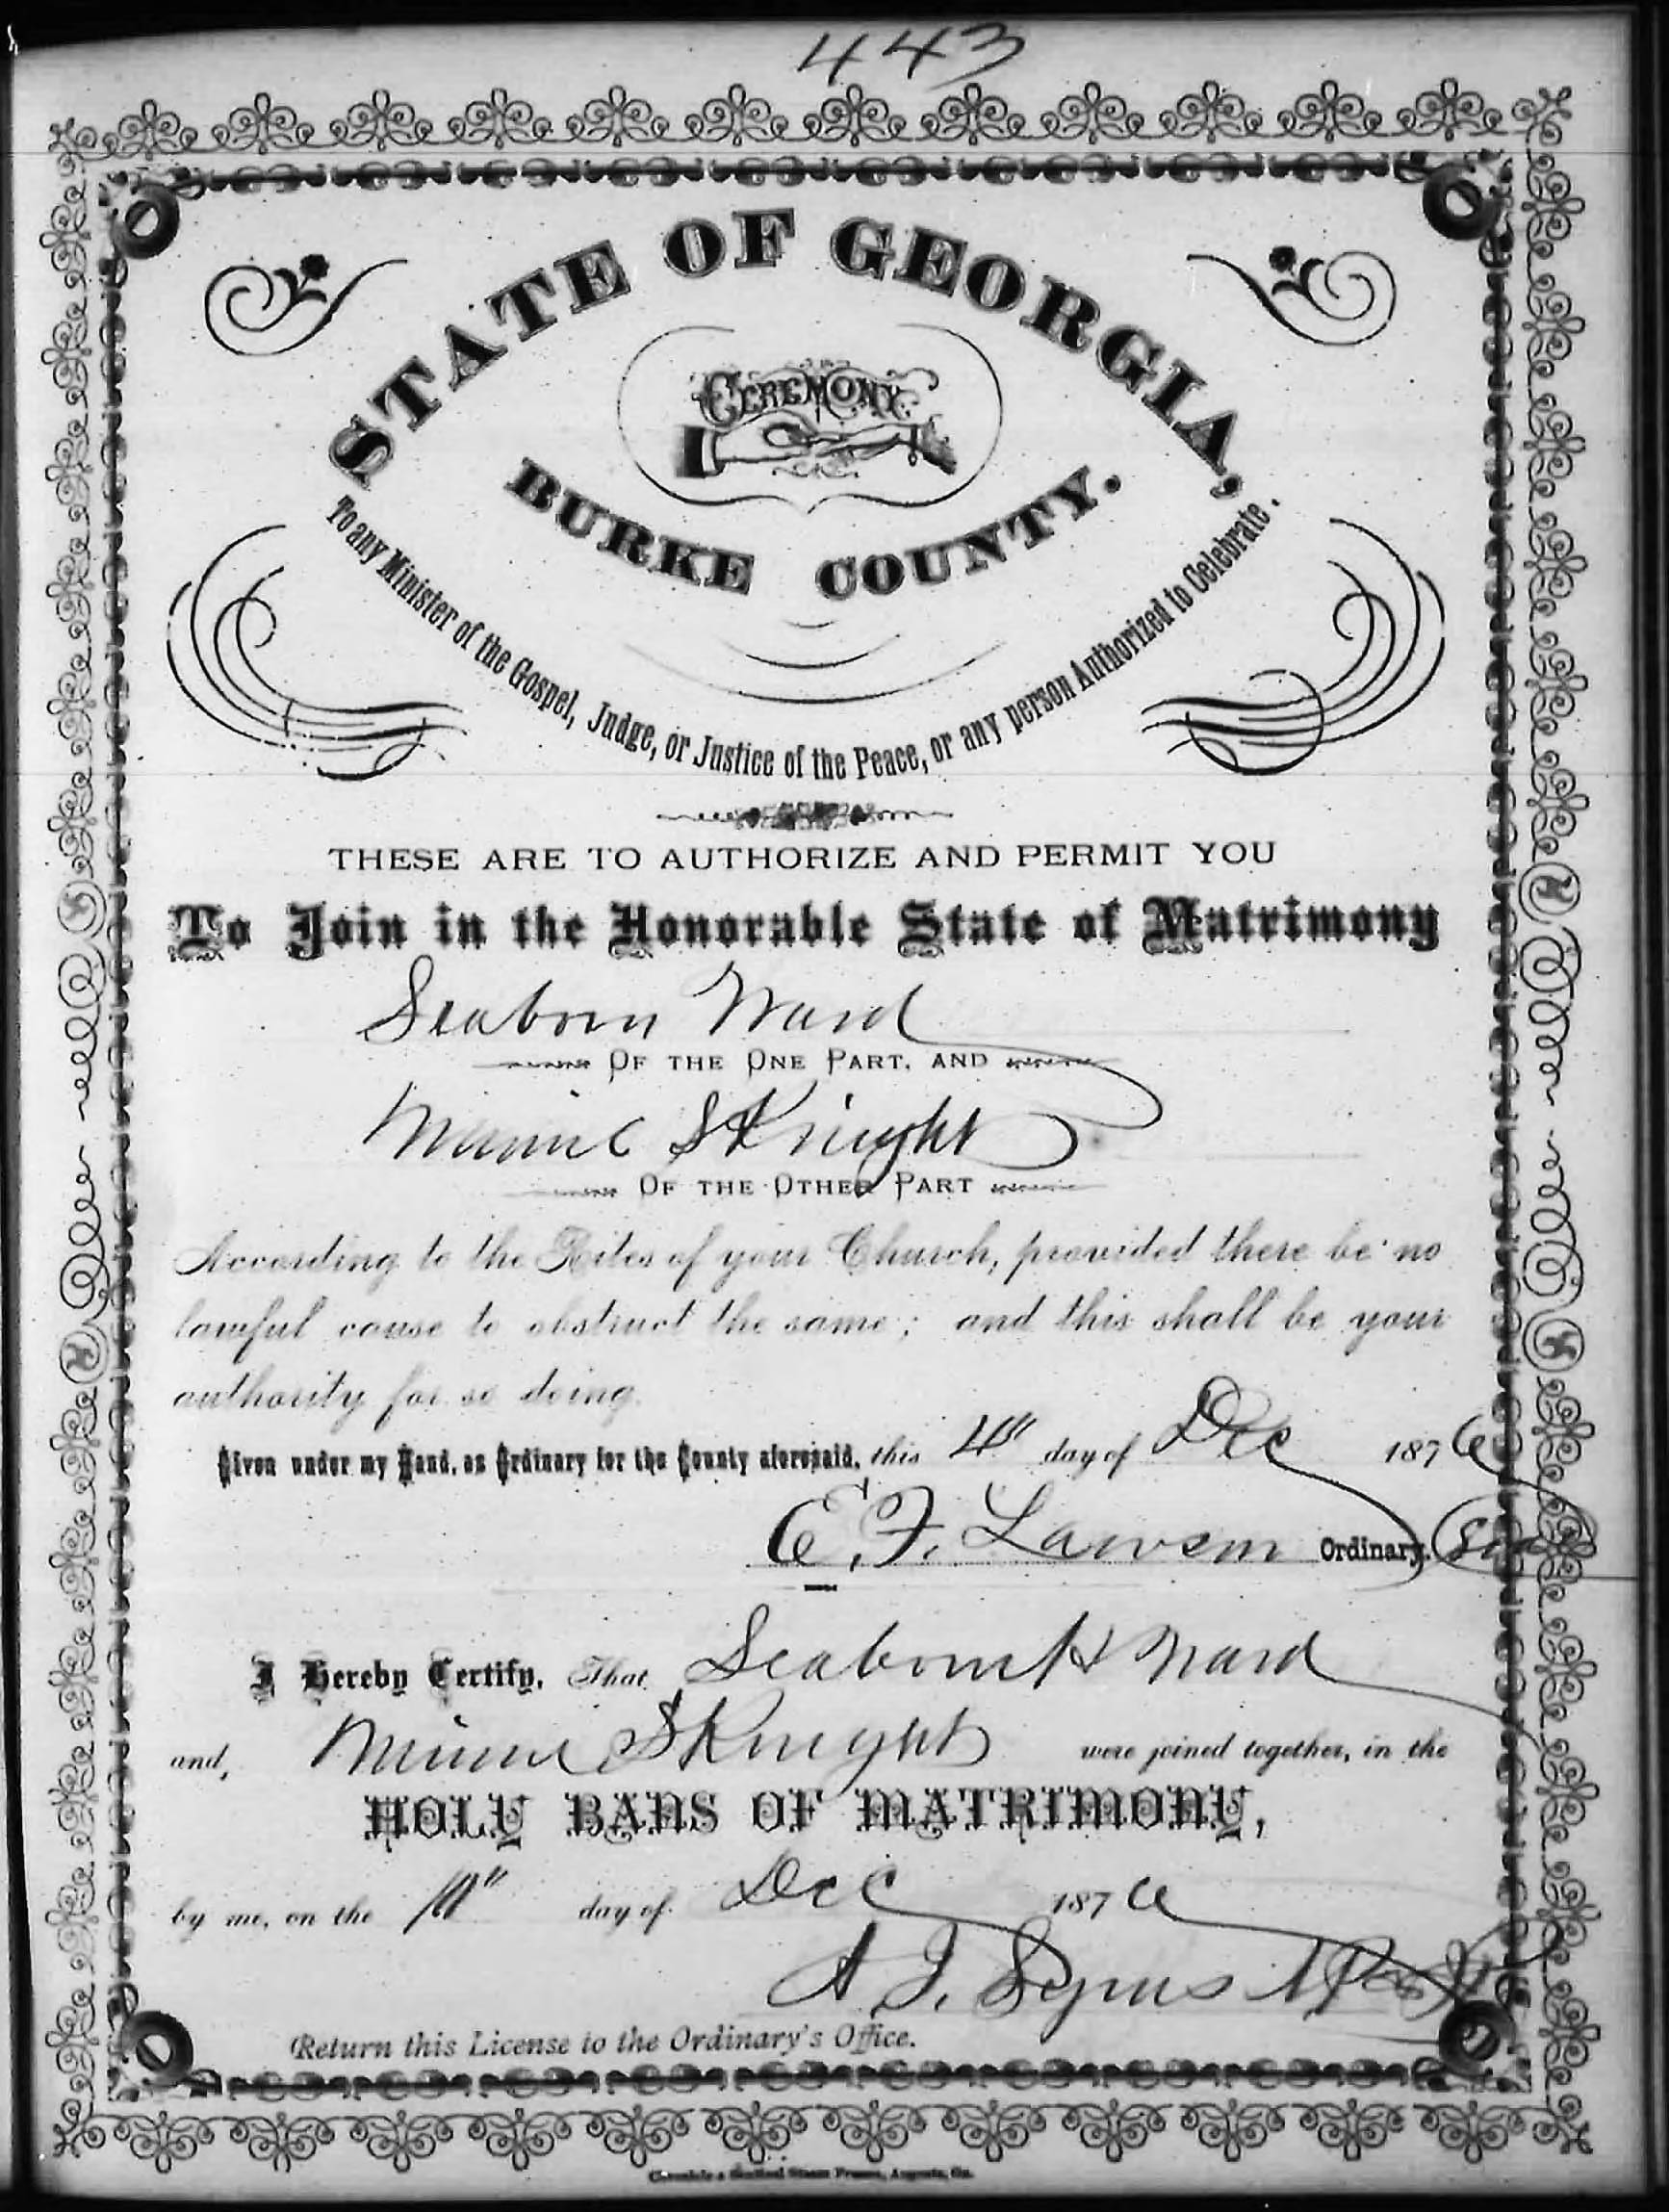 443
STATE OF GEORGIA,
CEREMONY
BURKE COUNTY.
To any Minister of the Gospel, Judge, or Justice of the Peace, or any person Authorized to Celebrate.
THESE ARE TO AUTHORIZE AND PERMIT YOU
To Join in the Honorable State of Matrimony
Seaborn Ward
OF THE ONE PART, AND
Minnie S Knight
OF THE OTHER PART
According to the Rites of your Church, provided there be no
lawful cause to obstruct the same; and this shall be your
authority for so doing.
Given under my Hand, as Ordinary for the County aforesaid, this 4th day of Dec 1876
E. F. Lawson Ordinary. Seal
I Hereby Certify, That Seaborn H Ward
and, Minnie S Knight were joined together, in the
HOLY BANS OF MATRIMONY,
by me, on the day of Dec 1876
A J.
Return this License to the Ordinary's Office.
Chronicle & Sentinel Steam Presses, Augusta, Ga.